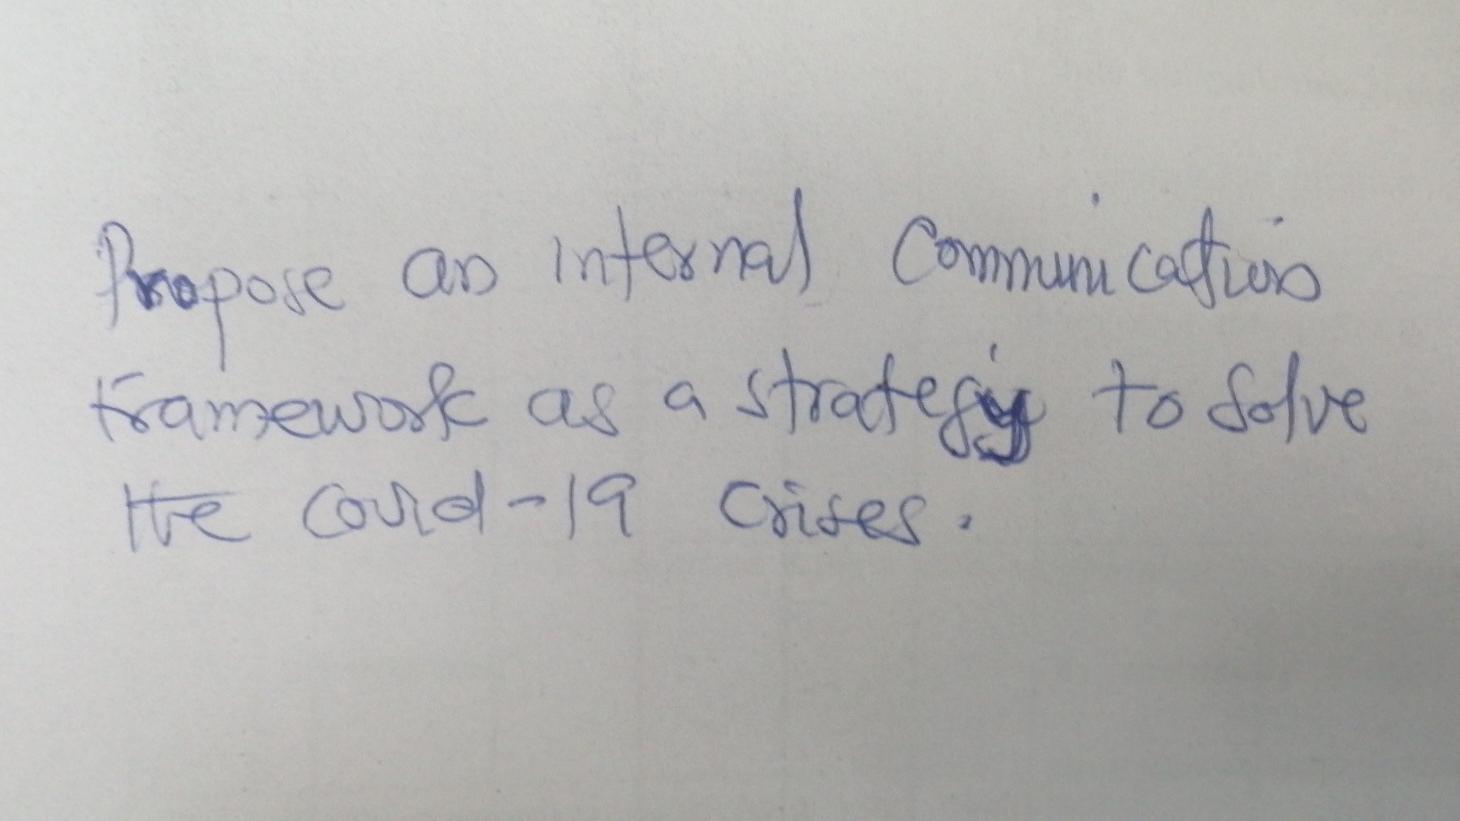 Propose an internal Communication
Framework as a strategy to solve
the Covid-19 Crises.